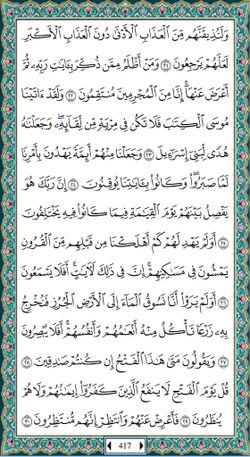 وَلَنُذِيقَنَّهُم مِّنَ ٱلْعَذَابِ ٱلْأَدْنَىٰ دُونَ ٱلْعَذَابِ ٱلْأَكْبَرِ
لَعَلَّهُمْ يَرْجِعُونَ ٢١ وَمَنْ أَظْلَمُ مِمَّن ذُكِّرَ بِـَٔايَٰتِ رَبِّهِۦ ثُمَّ
أَعْرَضَ عَنْهَآ ۚ إِنَّا مِنَ ٱلْمُجْرِمِينَ مُنتَقِمُونَ ٢٢ وَلَقَدْ ءَاتَيْنَا
مُوسَى ٱلْكِتَٰبَ فَلَا تَكُن فِى مِرْيَةٍ مِّن لِّقَآئِهِۦ ۖ وَجَعَلْنَٰهُ
هُدًى لِّبَنِىٓ إِسْرَٰٓءِيلَ ٢٣ وَجَعَلْنَا مِنْهُمْ أَئِمَّةً يَهْدُونَ بِأَمْرِنَا
لَمَّا صَبَرُوا۟ ۖ وَكَانُوا۟ بِـَٔايَٰتِنَا يُوقِنُونَ ٢٤ إِنَّ رَبَّكَ هُوَ
يَفْصِلُ بَيْنَهُمْ يَوْمَ ٱلْقِيَٰمَةِ فِيمَا كَانُوا۟ فِيهِ يَخْتَلِفُونَ
٢٥ أَوَلَمْ يَهْدِ لَهُمْ كَمْ أَهْلَكْنَا مِن قَبْلِهِم مِّنَ ٱلْقُرُونِ
يَمْشُونَ فِى مَسَٰكِنِهِمْ ۚ إِنَّ فِى ذَٰلِكَ لَـَٔايَٰتٍ ۖ أَفَلَا يَسْمَعُونَ
٢٦ أَوَلَمْ يَرَوْا۟ أَنَّا نَسُوقُ ٱلْمَآءَ إِلَى ٱلْأَرْضِ ٱلْجُرُزِ فَنُخْرِجُ
بِهِۦ زَرْعًا تَأْكُلُ مِنْهُ أَنْعَٰمُهُمْ وَأَنفُسُهُمْ ۖ أَفَلَا يُبْصِرُونَ
٢٧ وَيَقُولُونَ مَتَىٰ هَٰذَا ٱلْفَتْحُ إِن كُنتُمْ صَٰدِقِينَ ٢٨
قُلْ يَوْمَ ٱلْفَتْحِ لَا يَنفَعُ ٱلَّذِينَ كَفَرُوٓا۟ إِيمَٰنُهُمْ وَلَا هُمْ
يُنظَرُونَ ٢٩ فَأَعْرِضْ عَنْهُمْ وَٱنتَظِرْ إِنَّهُم مُّنتَظِرُونَ ٣٠
417